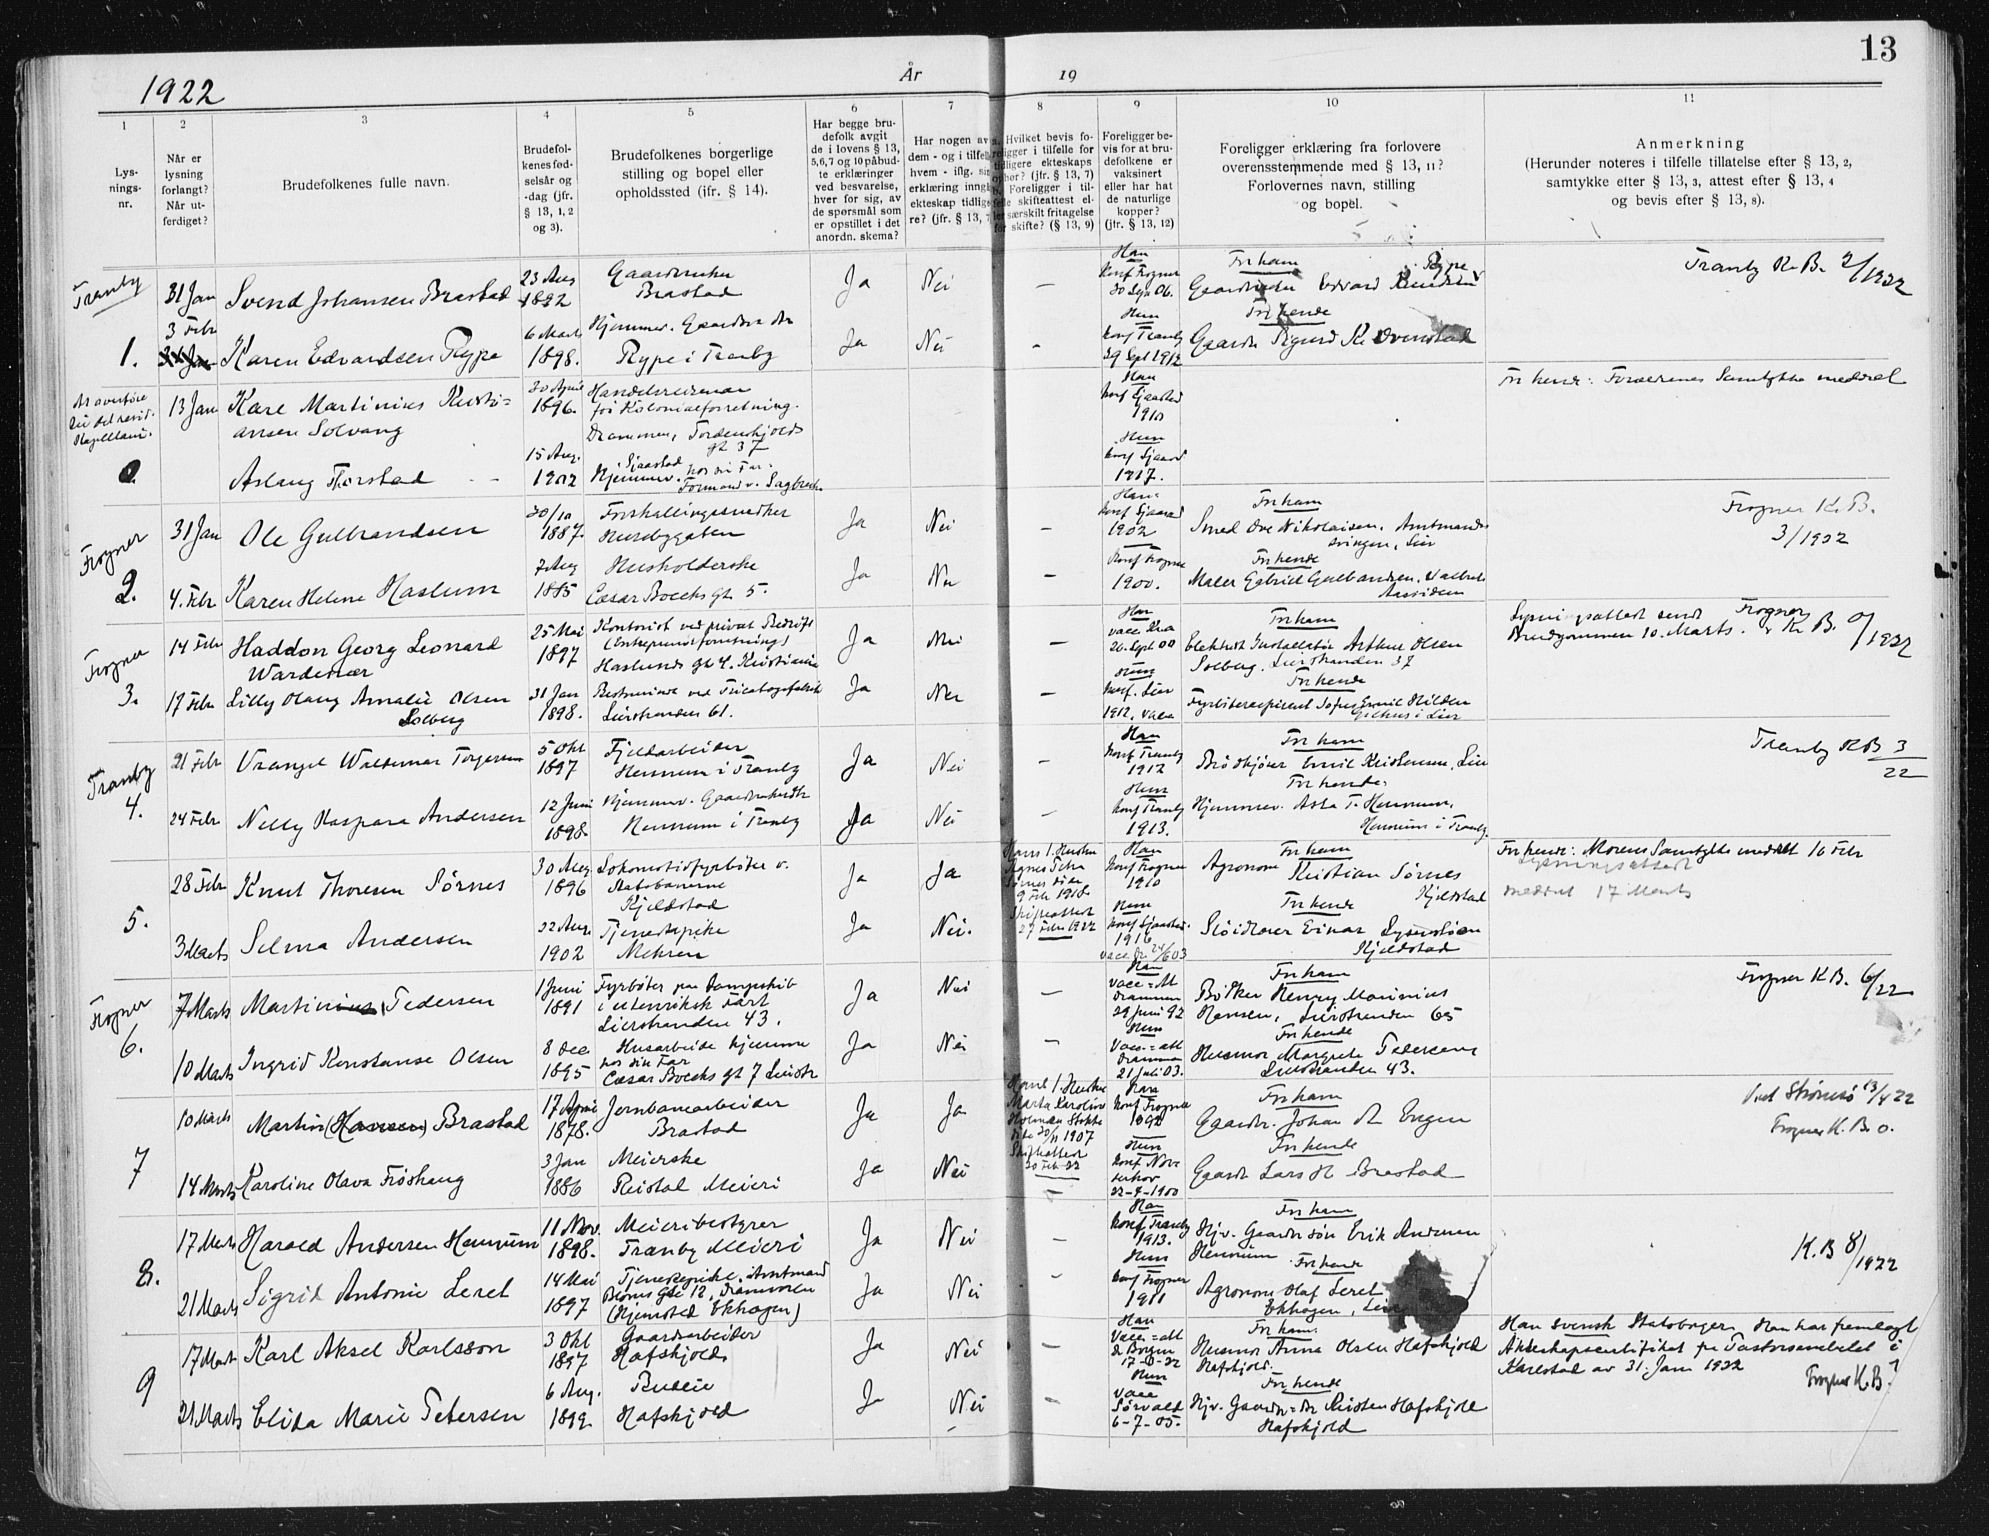 13
1922
År
19
1
2
3
4
5
6
7
8
9
10
11
Lys-
nings-
nr.
Når er
lysning
forlangt?
Når ut-
ferdiget?
Brudefolkenes fulle navn.
Brudefol-
kenes fød-
selsår og
-dag (jfr.
§ 13, 1, 2
og 3).
Brudefolkenes borgerlige
stilling og bopel eller
opholdssted (ifr. § 14).
Har begge bru-
defolk avgit
de i lovens § 13,
5,6,7 og 10 påbud-
te erklæringer
ved besvarelse,
hver for sig, av
de spørsmål som
er opstillet i det
anordn. skema?
Har nogen av
dem - og i tilfelle
hvem - iflg. sin
erklæring inngått
ekteskap tidlige-
re? (jfr. § 13, 7
Hvilket bevis fo-
religger i tilfelle for
tidligere ekteskaps
ophør? (jfr. § 13, 7)
b. Foreligger i til-
felle skifteattest el-
ler særskilt fritagelse
for skifte? (§ 13, 9)
Foreligger be-
vis for at bru-
defolkene er
vaksinert
eller har hat
de naturlige
kopper?
(jfr. § 13, 12)
Foreligger erklæring fra forlovere
overensstemmende med § 13, 11?
Forlovernes navn, stilling
og bopel.
Anmerkning
(Herunder noteres i tilfelle tillatelse efter § 13, 2,
samtykke efter § 13, 3, attest efter § 13, 4
og bevis efter § 13, 8).
Tranby
31 Jan
Svend Johansen Brastad
23 Aug
1892
Gaardbruker
Brastad
Ja
Nei
Han
Konf Frogner
30 Sept 06.
For ham
Gaardbruker Edvard Knudsen Rype
Tranby K.B. 2/1922
1.
3 Febr
Karen Edvardsen Rype
6 Marts
1898.
Hjemmev. Gaardbr dtr
Rype i Tranby
Ja
Nei
Hun
Konf Tranby
29 Sept 1912
For hende
Gaardbr Sigurd K.
13 Jan
Kåre Martinius Kristi-
ansen Solvang
30 April
1896.
Handelsreisende
for Kolonialforretning.
Drammen, Tordenskjolds
gt 37
Han
Konf Sjaastad
1910
For hende: Forældrenes Samtykke meddelt
0
Aslaug Thorstad
15 Aug.
1902
Sjaastad
Hjemmev. hos sin Far.
Formand v. Sagbruk
Hun
Konf Sjaastad
1917.
Frogner
31 Jan
Ole Gulbrandsen
30/10
1887.
Forskallingssnedker
Husebygaten
Ja
Nei
Han
Konf Sjaastad
1902
For ham
Smed Ove Nikolaisen. Amtmand-
svingen, Lier
Frogner K. B.
3/1922
2.
4. Febr
Karen Helene Haslum
7 Aug
1885
Husholderske
Cæsar Boecks gt 5.
Ja
Nei
Konf Frogner
1900.
For hende
Maler Gabriel Gulbrandsen.
Frogner
14 Febr
Haddon Georg Leonard
Wardenær
25 Mai
1897
Kontorist ved privat Bedrift
(Entreprenørforretning)
Haslunds gt 4. Kristiania
Ja
Nei
Han
vacc. Kra
26 Sept 00
For ham
Elektrisk Installatør Arthur Olsen
Solberg. Lierstranden 37
Lysningsattest sendt
Brudgommen 10. Marts.
Frogner K. B. 0/1922
3.
17 Febr
Lilly Olaug Amalie Olsen
Solberg
31 Jan
1898.
Bestyrerinde ved Tricotagefabrik
Lierstranden 61.
Ja
Nei
Hun
Konf. Lier
1912. vacc
For hende
Fyrbøteraspirant Sofus Emil Hilden
Gilhus i Lier
Tranby
21 Febr
Vrangel Waldemar Torgersen
5 Okt
1897
Fjeldarbeider
Hennum i Tranby
Ja
Nei
Han
Konf Tranby
1912
For ham
Brødkjører Emil Kristensen, Lier
Tranby K B 3/22
4.
24 Febr
Nelly Kaspara Andersen
12 Juni
1898.
Hjemmev. Gaardbrukerdtr
Hennum i Tranby
Ja
Nei
Hun
Konf Tranby
1913.
For hende.
Hjemmev. Asta T. Hennum,
Hennum i Tranby.
28 Febr
Knut Thoresen Sørnes
30 Aug
1896
Lokomotivfyrbøter v.
Statsbanerne
Kjeldstad
Ja
Ja
Hans 1. Hustru
Agnes Petra
Sørnes døde
9 Febr 1918.
Skifteattest
27 Febr 1922
Han
Konf Frogner
1910
For ham
Agronom Kristian Sørnes
Kjeldstad
For hende: Morens Samtykke meddelt 16 Febr
Lysningsattest
meddelt 17 Marts
5.
3 Marts
Selma Andersen
22 Aug.
1902
Tjenestepike
Mehren
Ja
Nei.
Hun
Konf Sjaastad.
1916
vacc. 24/6 03
For hende
Sløidlærer Einar
Kjeldstad
Frogner
7 Marts
Martinius Pedersen
1 Juni
1891
Fyrbøter paa Dampskib
i utenriksk Fart
Lierstranden 43.
Ja
Nei
Han
Vacc=att
Drammen
29 Juni 92
For ham
Bøtker Henry Marinius
Hansen, Lierstranden 65
Frogner K.B. 6/22
6.
10 Marts
Ingrid Konstanse Olsen
8 Dec
1895
Husarbeide hjemme
hos sin Far
Cæsar Boecks gt 7 Lierstr
Ja
Nei
Hun
Vacc=att
Drammen
21 Juli 03.
For hende
Husmor Margrete Pedersen
Lierstranden 43.
10 Marts
Martin (Hansen) Brastad
17 April
1878.
Jernbanearbeider
Brastad
Ja
Ja
Hans 1. Hustru
Marta Karoline
Holmen Stokke
døde 30/11 1907
Skifteattest
20 Feb 22
Han
Konf Frogner
1892
For ham
Gaardbr. Johan A Engen
Viet Strømsø 13/4 22
Frogner K. B. 0.
7
14 Marts
Karoline Olava Frøshaug
3 Jan
1886
Meierske
Reistad Meieri
Ja
Nei
Hun
22-4-1900
For hende
Gaardbr Lars H Brastad
17 Marts
Harald Andersen Hennum
11 Nov.
1898.
Meieribestyrer
Tranby Meieri
Ja
Nei
Han
Konf Tranby
1913.
For ham
Hjv. Gaardbr søn Erik Andersen
Hennum
K.B 8/1922
8.
21 Marts
Sigrid Antonie Leret
14 Mai
1897
Tjenestepike. Amtmand
Bloms Gte 12, Drammen
(Hjemsted Ekhagen)
Ja
Nei
Hun
Konf Frogner
1911
For hende
Agronom Olaf Leret
Ekhagen, Lier
17 Marts
Karl Aksel Karlsson
3 Okt
1897
Gaardsarbeider
Hafskjold
Ja
Nei
Han
Vacc=att
17-2-22
For ham.
Husmor Anna Olsen Hafskjold
Hafskjold.
Han svensk Statsborger. Han har fremlagt
Ækteskapscertifikat fra Pastorsembetet i
Karlstad av 31. Jan 1922
Frogner K.B. 7
9
21 Marts
Elida Marie Petersen
6 Aug.
1899.
Budeie
Hafskjold
Ja
Nei
Hun
vacc
Sørvald
6-7-05.
For hende
Hjv. Gaardbr=dtr Kirsten Hafskjold
Hafskjold